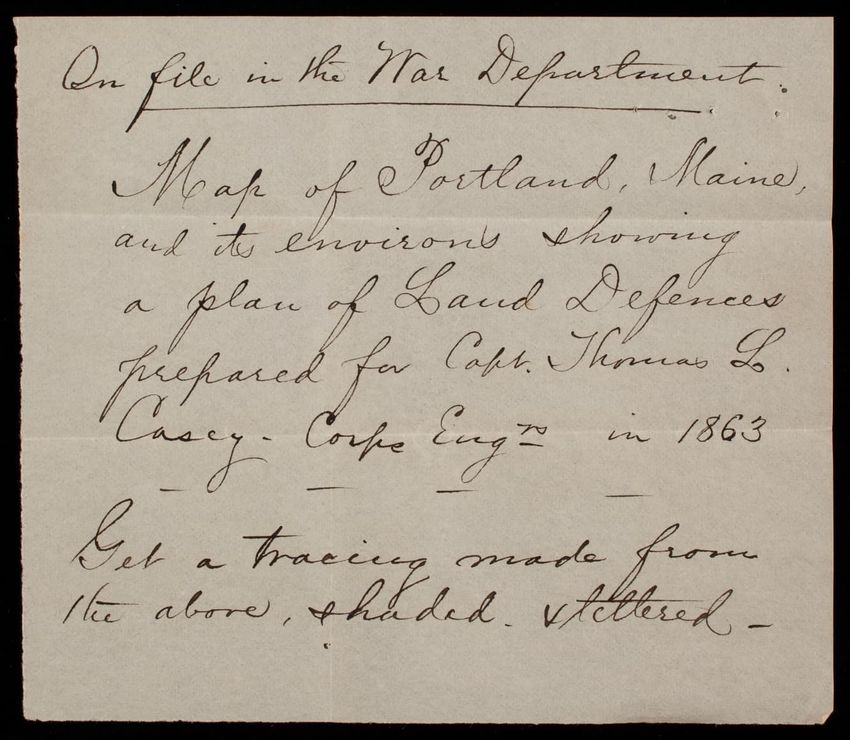 On file in the War Department.
Map of Portland, Maine,
and its environs showing
a plan of Land Defences
prepared for Capt. Thomas L.
Casey - Corps Engrs in 1863
Get a tracing made from
the above, shaded. & lettered -